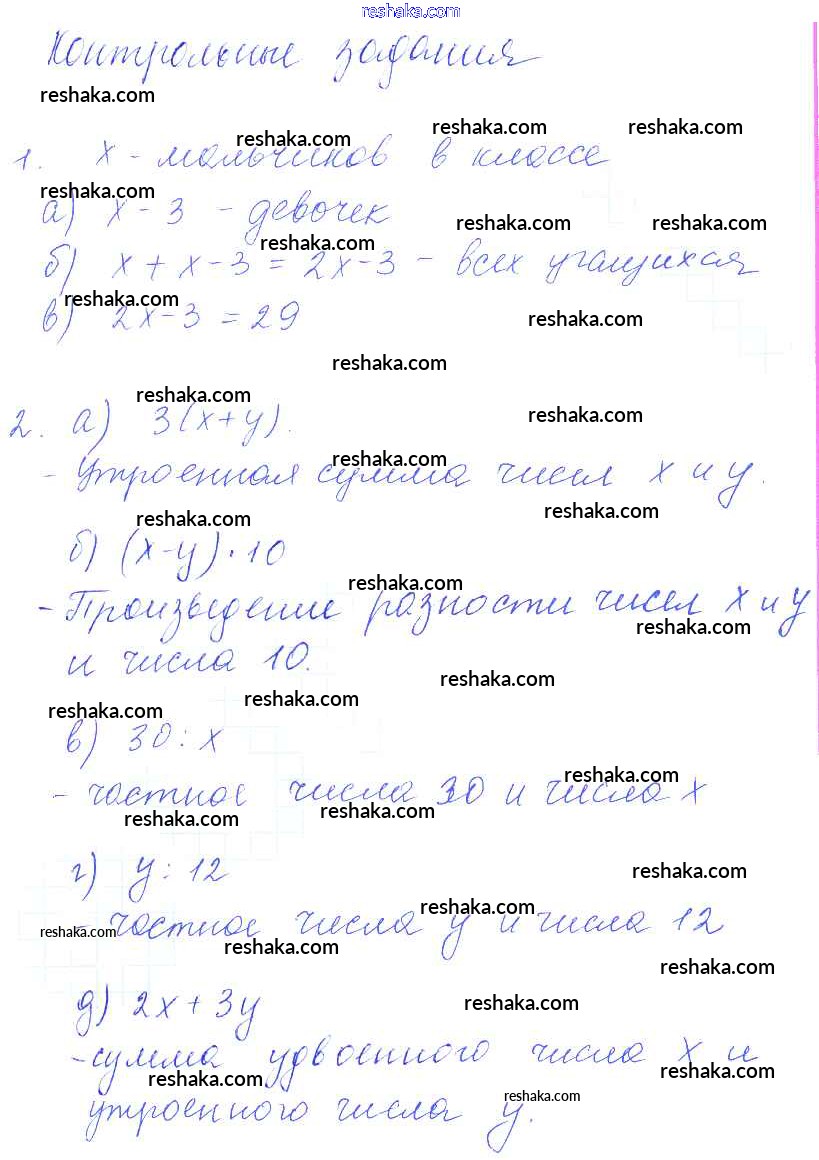 reshaka.com
Контрольные задания
reshaka.com
reshaka.com reshaka.com reshaka.com
1. x - мальчиков в классе
reshaka.com
а) x - 3 - девочек
reshaka.com reshaka.com reshaka.com
б) x + x - 3 = 2x - 3 - всех учащихся
reshaka.com
в) 2x - 3 = 29
reshaka.com
reshaka.com
reshaka.com
reshaka.com
2. а) 3(x+y).
reshaka.com
- Утроенная сумма чисел x и y.
reshaka.com
reshaka.com
б) (x-y)·10
reshaka.com
- Произведение разности чисел x и y
reshaka.com
и числа 10.
reshaka.com
reshaka.com
reshaka.com
в) 30 : x
reshaka.com
- частное числа 30 и числа x
reshaka.com reshaka.com
г) y : 12
reshaka.com
reshaka.com
- частное числа y и числа 12
reshaka.com
reshaka.com
reshaka.com
reshaka.com
д) 2x + 3y
- сумма удвоенного числа x и
reshaka.com reshaka.com
reshaka.com
утроенного числа y.